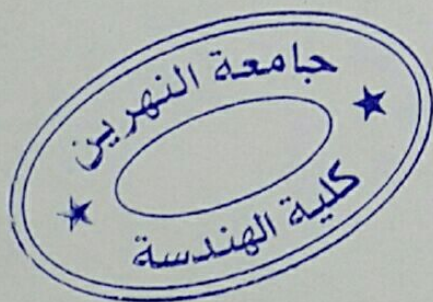 جامعة النهرين
كلية الهندسة